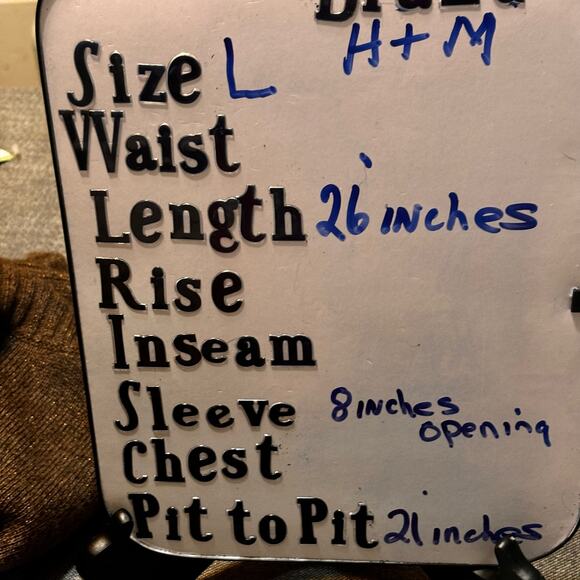 Brand
H+M
Size L
Waist
Length 26 inches
Rise
Inseam
Sleeve 8 inches
opening
Chest
Pit to Pit 21 inches